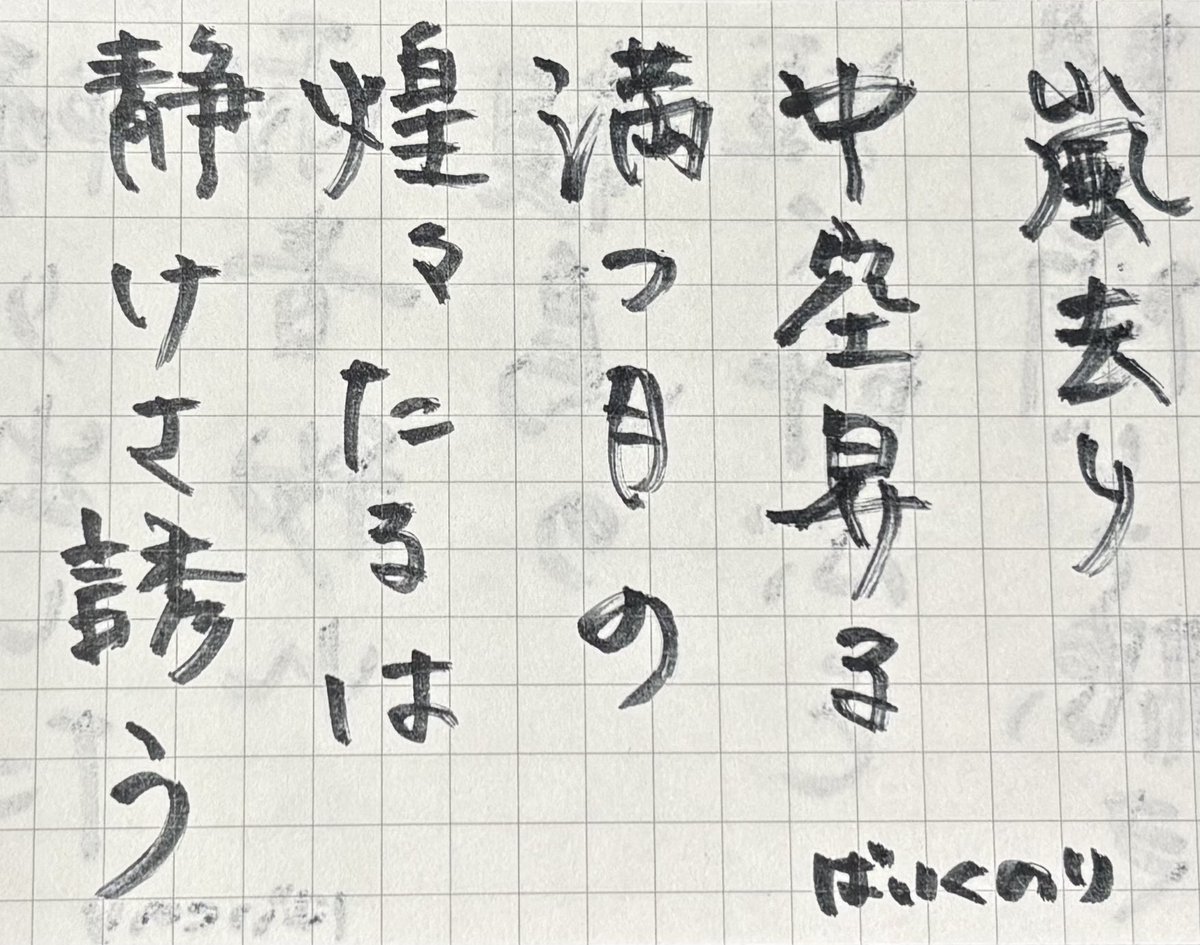 嵐去り
中空昇る
満つ月の
煌々たるは
静けさ誘う
ばいくのり